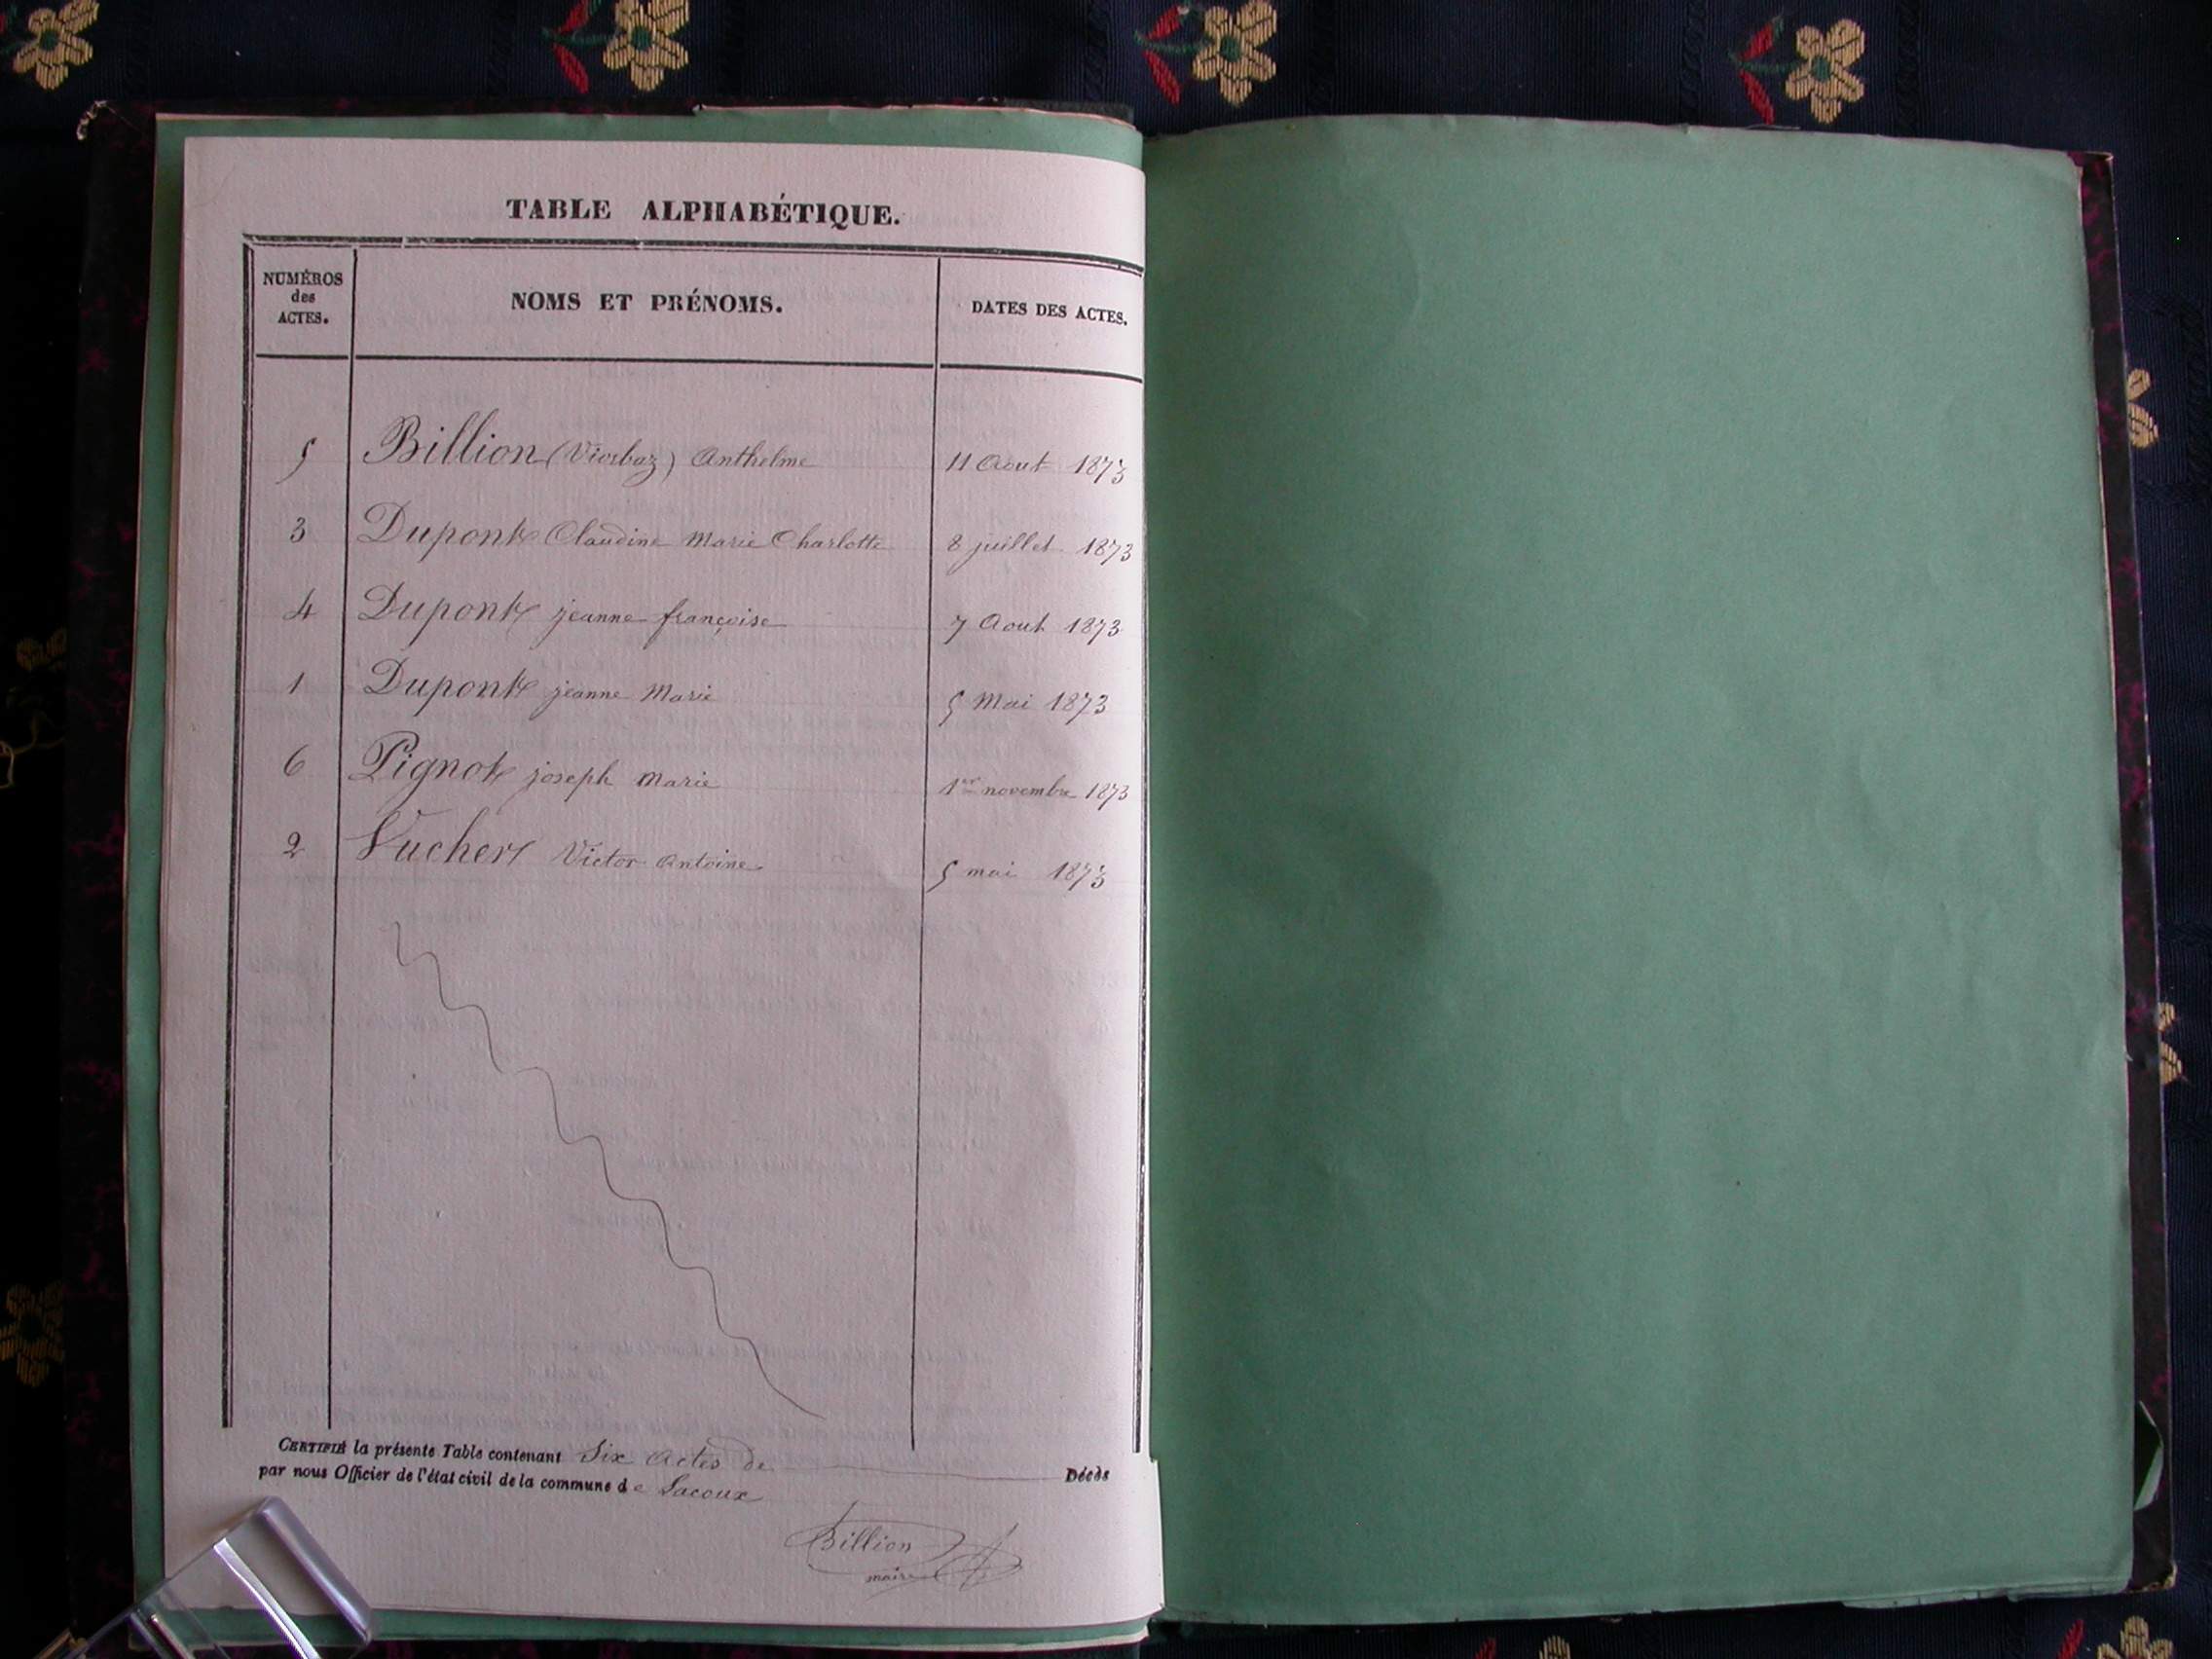 TABLE ALPHABÉTIQUE.
NUMÉROS des ACTES. NOMS ET PRÉNOMS. DATES DES ACTES.
5 Billion (Viorbaz) Anthelme 11 Aout 1873
3 Dupont Claudine Marie Charlotte 8 juillet 1873
4 Dupont jeanne françoise 7 Aout 1873
1 Dupont jeanne Marie 5 Mai 1873
6 Pignot joseph Marie 1er novembre 1873
2 Vucher Victor Antoine 5 mai 1873
CERTIFIÉ la présente Table contenant Six Actes de Décès
par nous Officier de l'état civil de la commune de Lacoux
Billion
maire